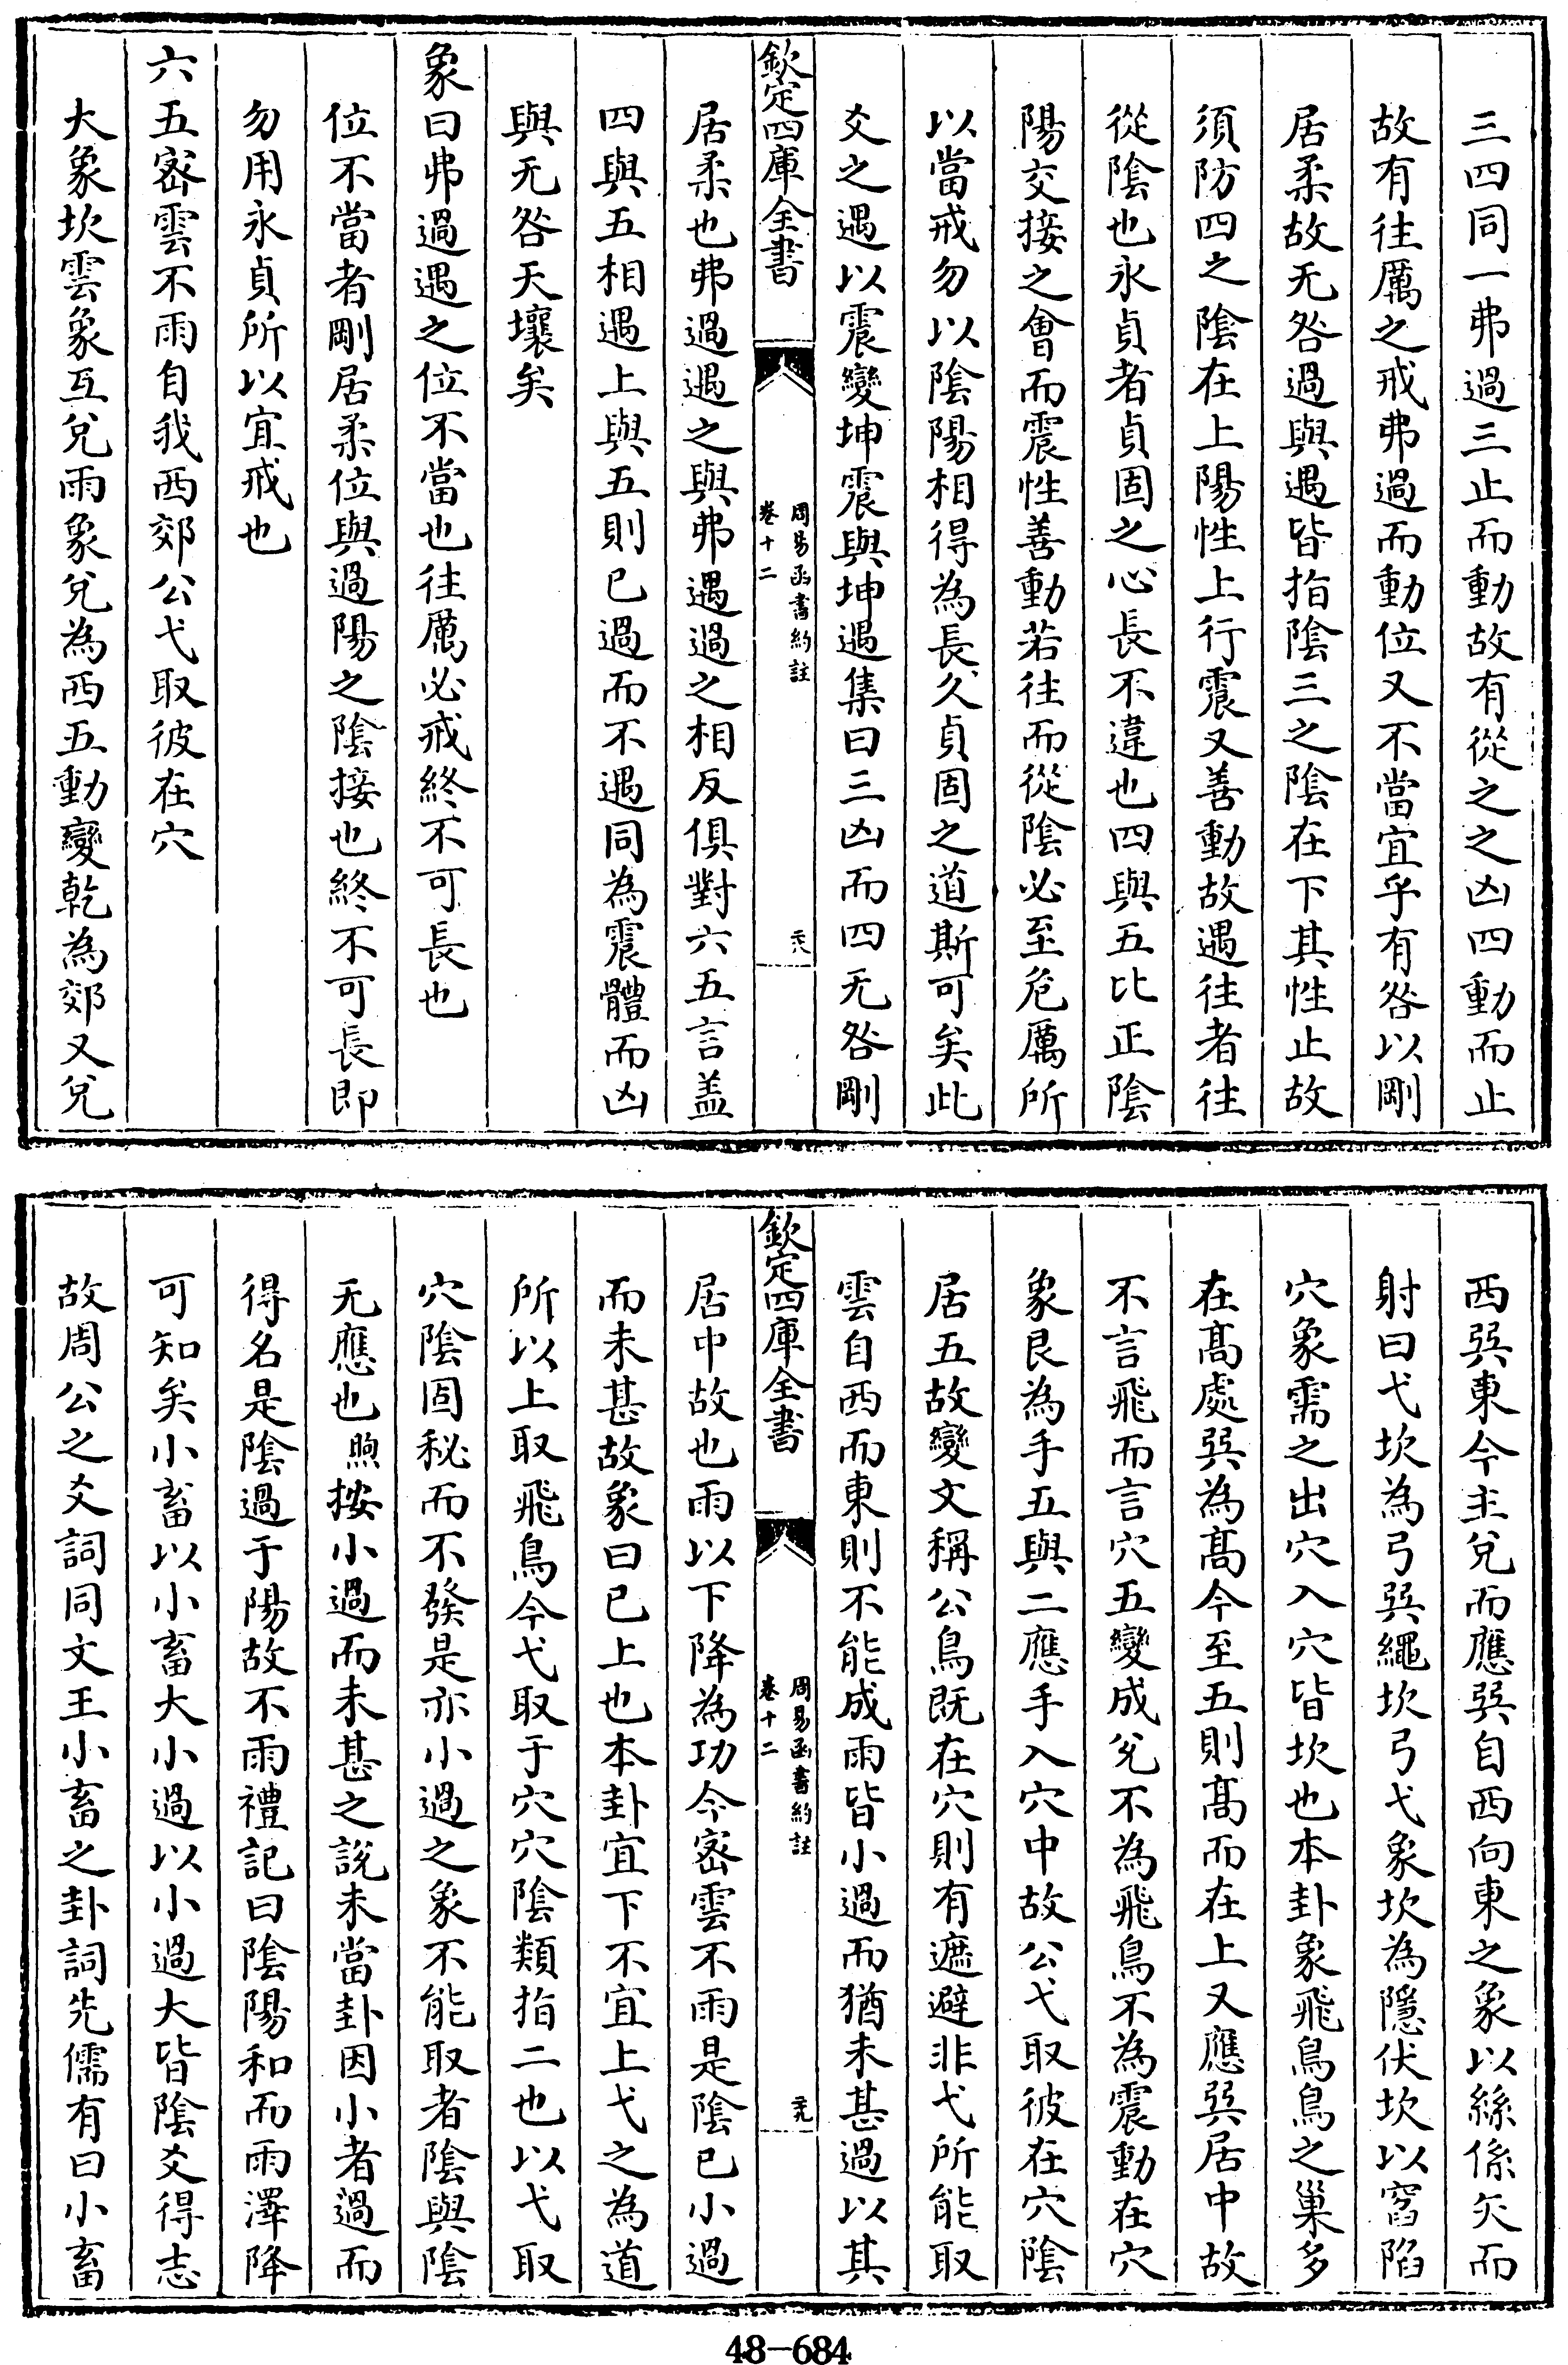 三四同一弗過三止而動故有從之之凶四動而止
故有往厲之戒弗過而動位又不當宜乎有咎以剛
居柔故无咎過與遇皆指陰三之陰在下其性止故
須防四之陰在上陽性上行震又善動故遇往者往
從陰也永貞者貞固之心長不違也四與五比正陰
陽交接之會而震性善動若往而從陰必至危厲所
以當戒勿以陰陽相得為長久貞固之道斯可矣此
爻之遇以震變坤震與坤遇集曰三凶而四无咎剛
欽定四庫全書
周易函書約註
卷十二
二十八
居柔也弗過遇之與弗遇過之相反俱對六五言盖
四與五相遇上與五則已過而不遇同為震體而凶
與无咎天壤矣
象曰弗過遇之位不當也往厲必戒終不可長也
位不當者剛居柔位與過陽之陰接也終不可長即
勿用永貞所以宜戒也
六五密雲不雨自我西郊公弋取彼在穴
大象坎雲象互兌雨象兌為西五動變乾為郊又兌
西巽東今主兌而應巽自西向東之象以絲係矢而
射曰弋坎為弓巽繩坎弓弋象坎為隱伏坎以窞陷
穴象需之出穴入穴皆坎也本卦象飛鳥鳥之巢多
在髙處巽為髙今至五則髙而在上又應巽居中故
不言飛而言穴五變成兌不為飛鳥不為震動在穴
象艮為手五與二應手入穴中故公弋取彼在穴陰
居五故變文稱公鳥既在穴則有遮避非弋所能取
雲自西而東則不能成雨皆小過而猶未甚過以其
欽定四庫全書
周易函書約註
卷十二
二十九
居中故也雨以下降為功今密雲不雨是陰已小過
而未甚故象曰已上也本卦宜下不宜上弋之為道
所以上取飛鳥今弋取于穴穴陰類指二也以弋取
穴陰固秘而不發是亦小過之象不能取者陰與陰
无應也煦按小過而未甚之說未當卦因小者過而
得名是陰過于陽故不雨禮記曰陰陽和而雨澤降
可知矣小畜以小畜大小過以小過大皆陰爻得志
故周公之爻詞同文王小畜之卦詞先儒有曰小畜
48-684